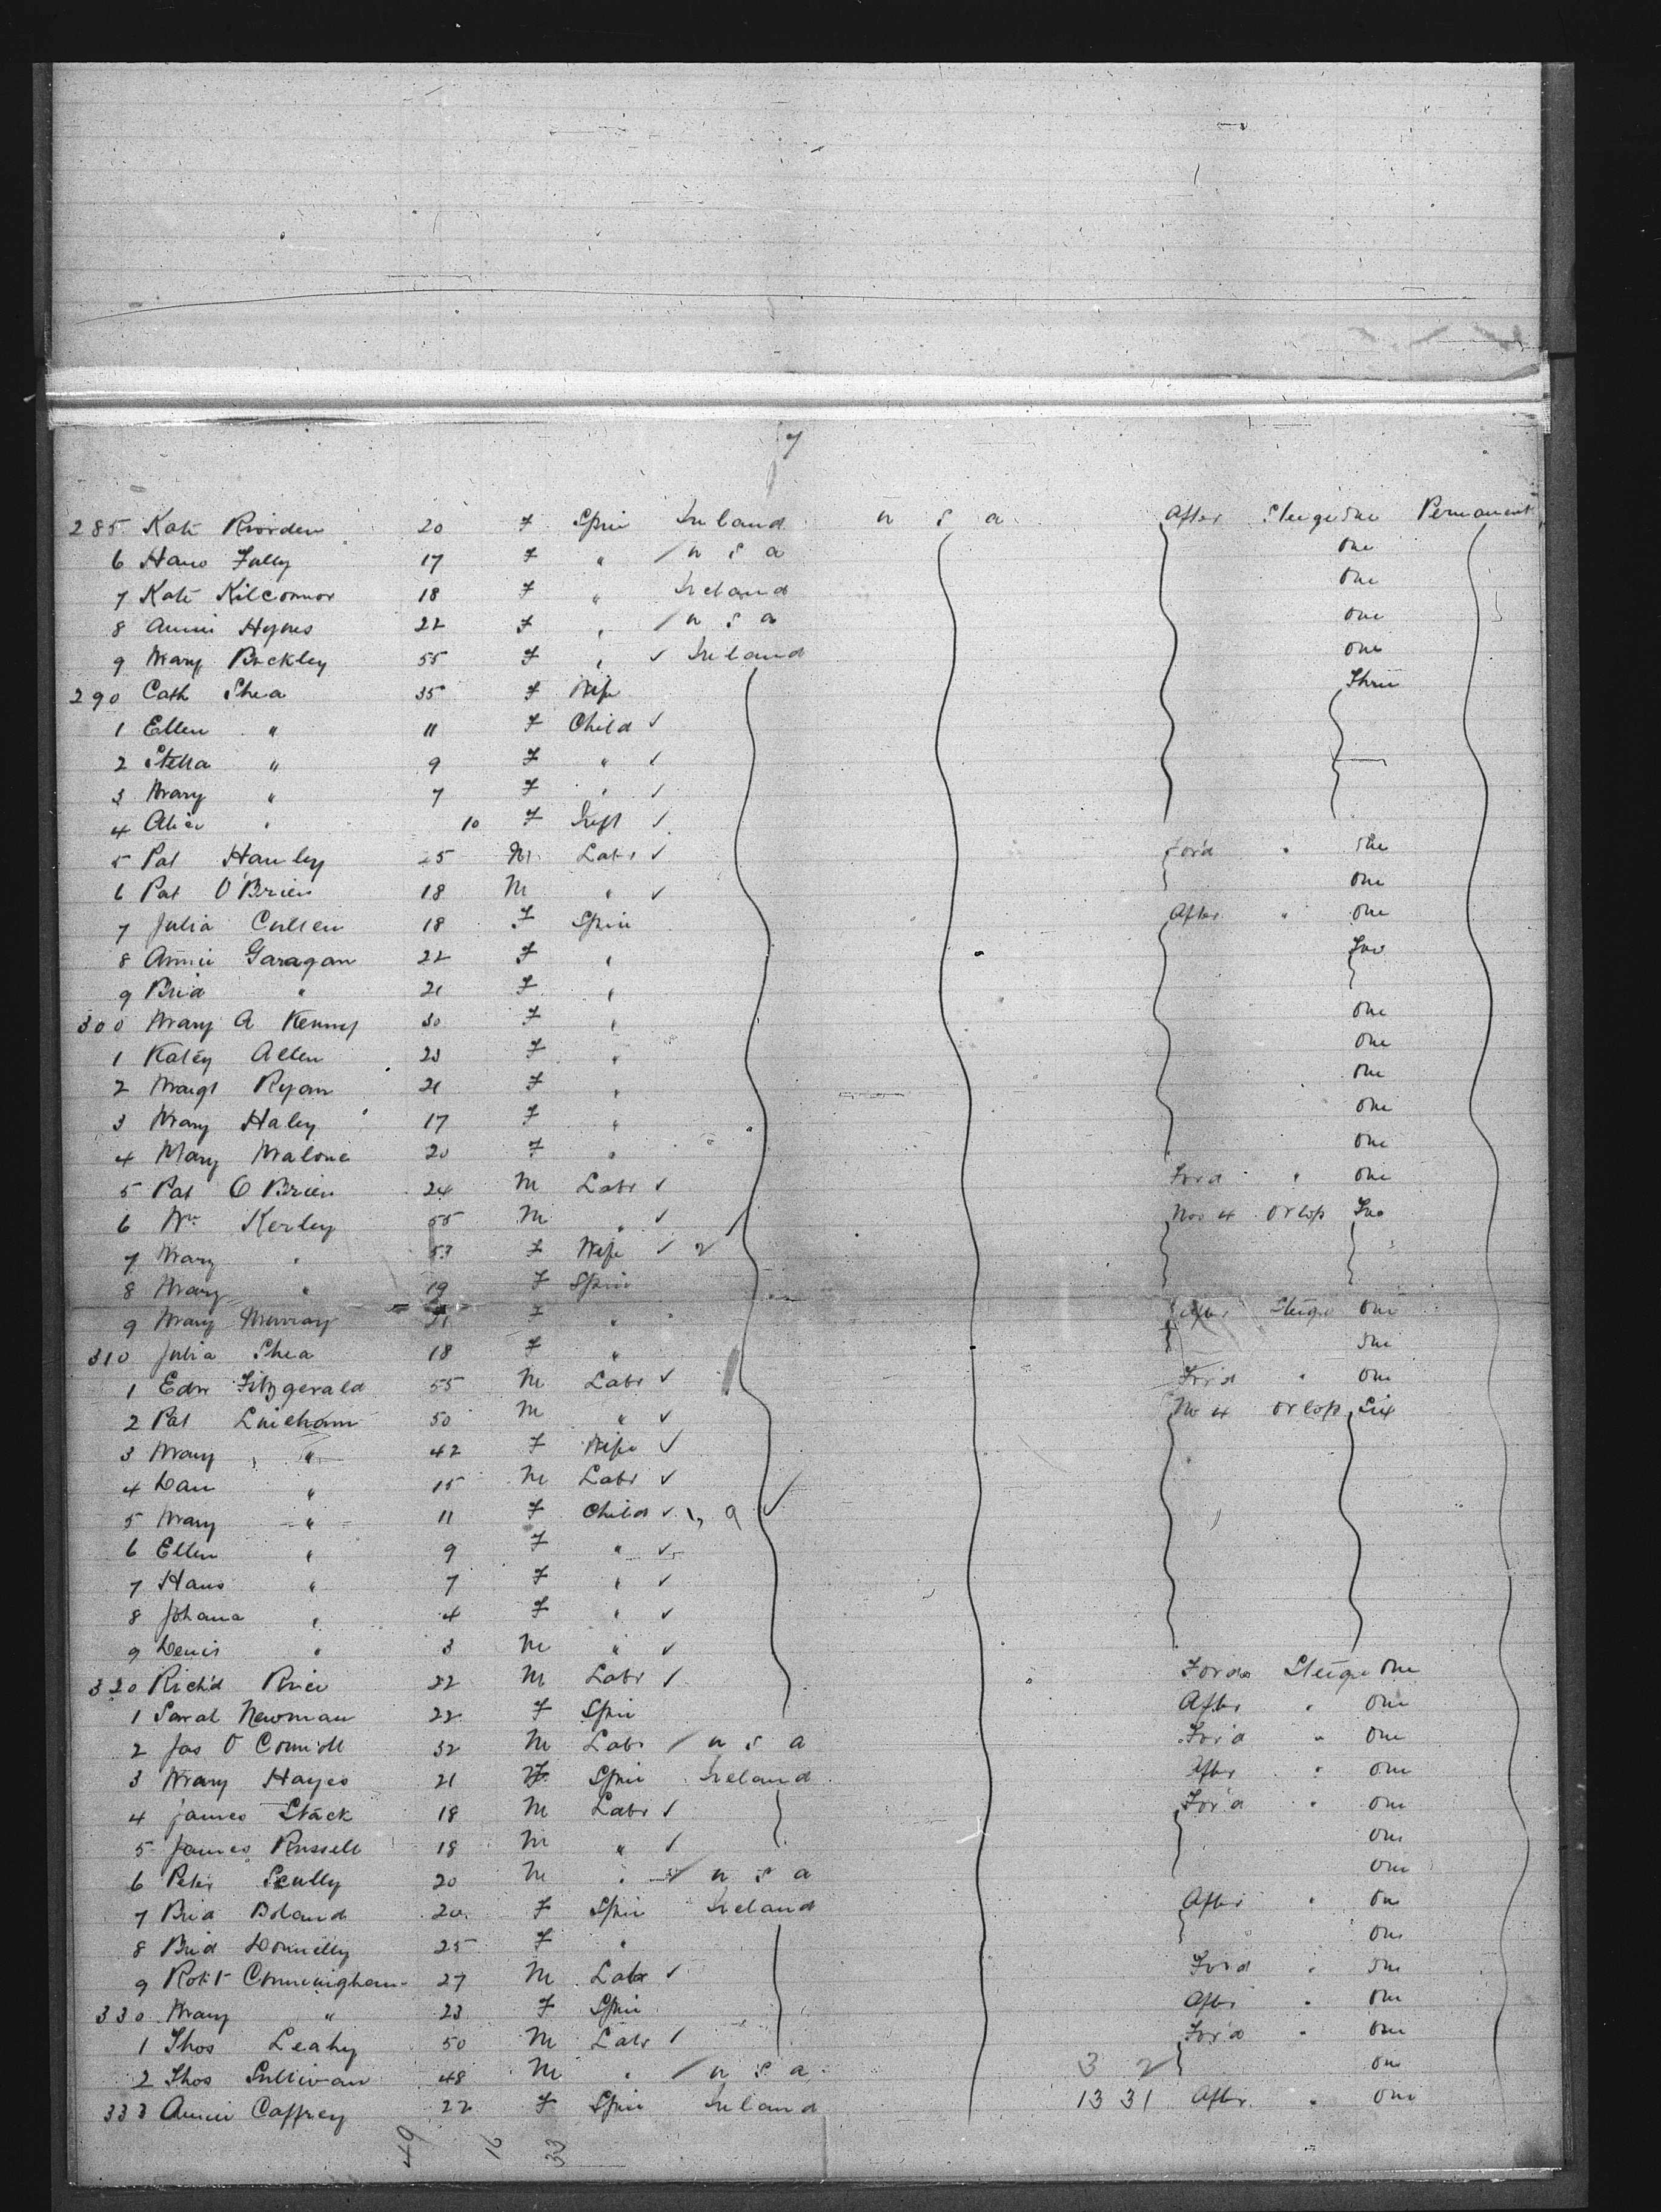 7
285 Kate Riorden 20 F Spin Ireland U S A After Steerge One Permanent
6 Hano Fully 17 F " / U S A One
7 Kate Kilconnor 18 F " Ireland One
8 Annie Hynes 22 F " / U S A One
9 Mary Buckley 55 F " ✓ Ireland One
290 Cath Shea 35 F Wife Three
1 Ellen " 11 F Child ✓
2 Stella " 9 F " ✓
3 Mary " 7 F " ✓
4 Alice " 10 F Inft ✓
5 Pat Hanley 25 M Labr ✓ For'd " One
6 Pat O'Brien 18 M " ✓ One
7 Julia Cullen 18 F Spin After " One
8 Annie Garagan 22 F " Two
9 Brid " 21 F "
300 Mary A Kenny 30 F " One
1 Katey Allen 23 F " One
2 Margt Ryan 21 F " One
3 Mary Haley 17 F " One
4 Mary Malone 20 F " One
5 Pat O Brien 24 M Labr ✓ Ford " One
6 Wm Kerley 55 M " ✓ No 4 Orlop Two
7 Mary " 53 F Wife ✓ 2
8 Mary " 19 F Spin
9 Mary Murray 21 F " After Steige One
310 Julia Shea 18 F " One
1 Edw Fitzgerald 55 M Labr ✓ For'd " One
2 Pat Lineham 50 M " ✓ No 4 Orlop Six
3 Mary " 42 F Wife ✓
4 Dan " 15 M Labr ✓
5 Mary " 11 F Child ✓ ✓
6 Ellen " 9 F " ✓
7 Hano " 7 F " ✓
8 Johana " 4 F " ✓
9 Denis " 3 M " ✓
320 Rich'd Price 22 M Labr ✓ Ford Steige One
1 Sarah Newman 22 F Spin After " One
2 Jas O Connell 32 M Labr / U S A For'd " One
3 Mary Hayes 21 F Spin Ireland After " One
4 James Stack 18 M Labr ✓ For'd " One
5 James Russell 18 M " ✓ One
6 Peter Scully 20 M " / U S A One
7 Brid Boland 20 F Spin Ireland After " One
8 Brid Donnelly 25 F " One
9 Robt Cunningham 27 M Labr ✓ Ford " One
330 Mary " 23 F Spin After " One
1 Thos Leahy 50 M Labr ✓ For'd " One
2 Thos Sullivan 48 M " / U S A 3 2 One
333 Annie Caffrey 22 F Spin Ireland 13 31 After " One
49 16 33